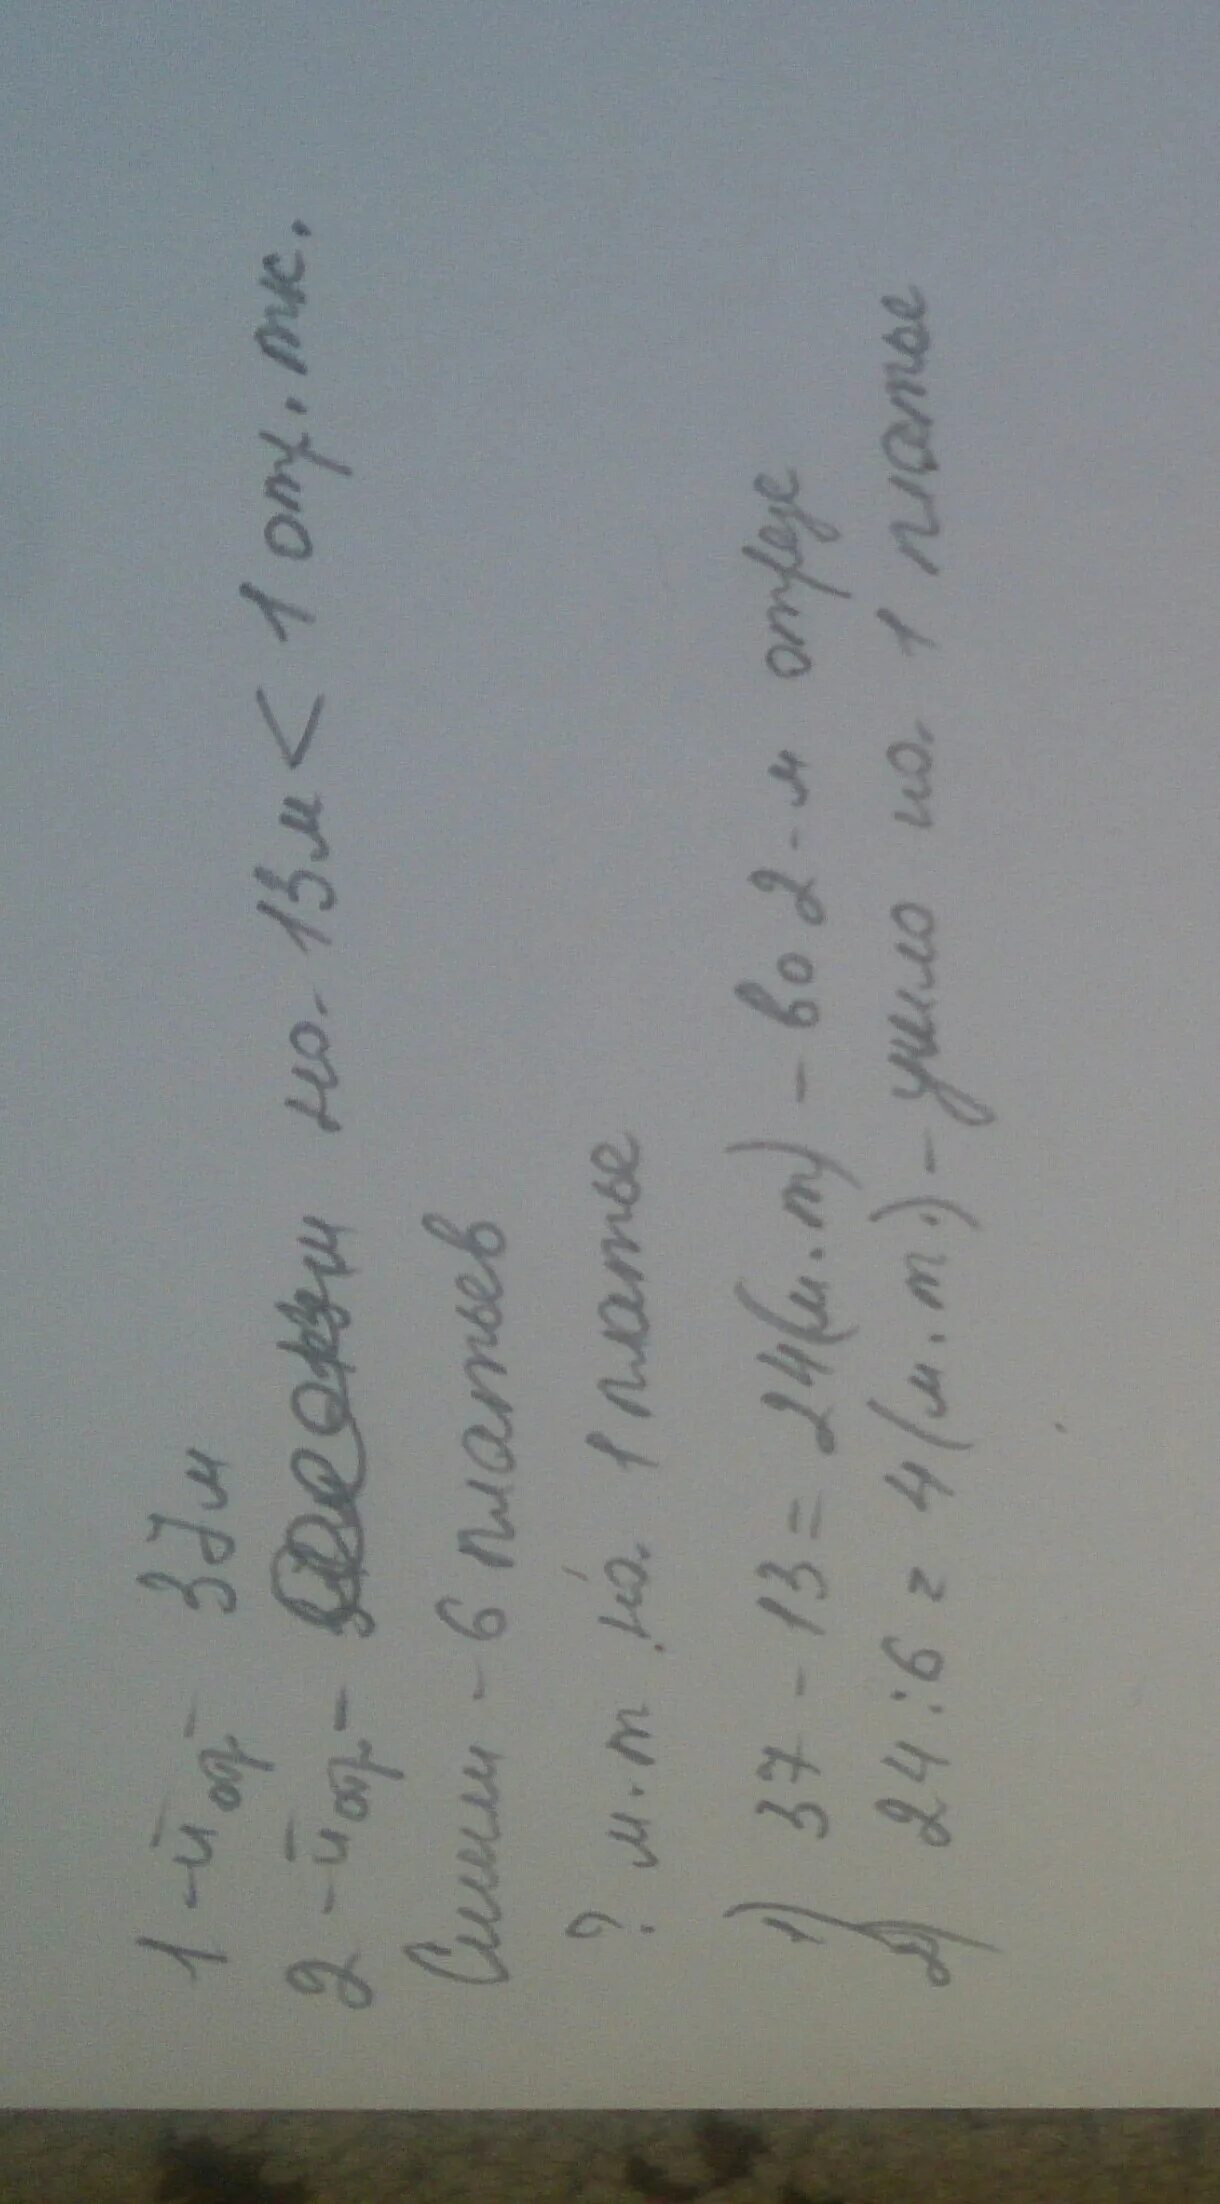 1 -й от - 37 м
2 -й от - на 13м < 1 от. тк.
Сшили - 6 платьев
? м.т на 1 платье
1) 37 - 13 = 24 (м.т) - во 2 - м отрезе
2) 24 : 6 = 4 (м.т.) - ушло на 1 платье